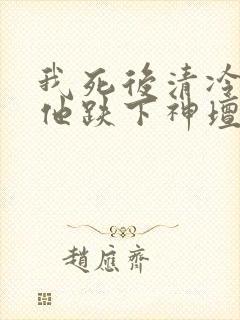 我死後清冷
他跌下神壇
趙應齊